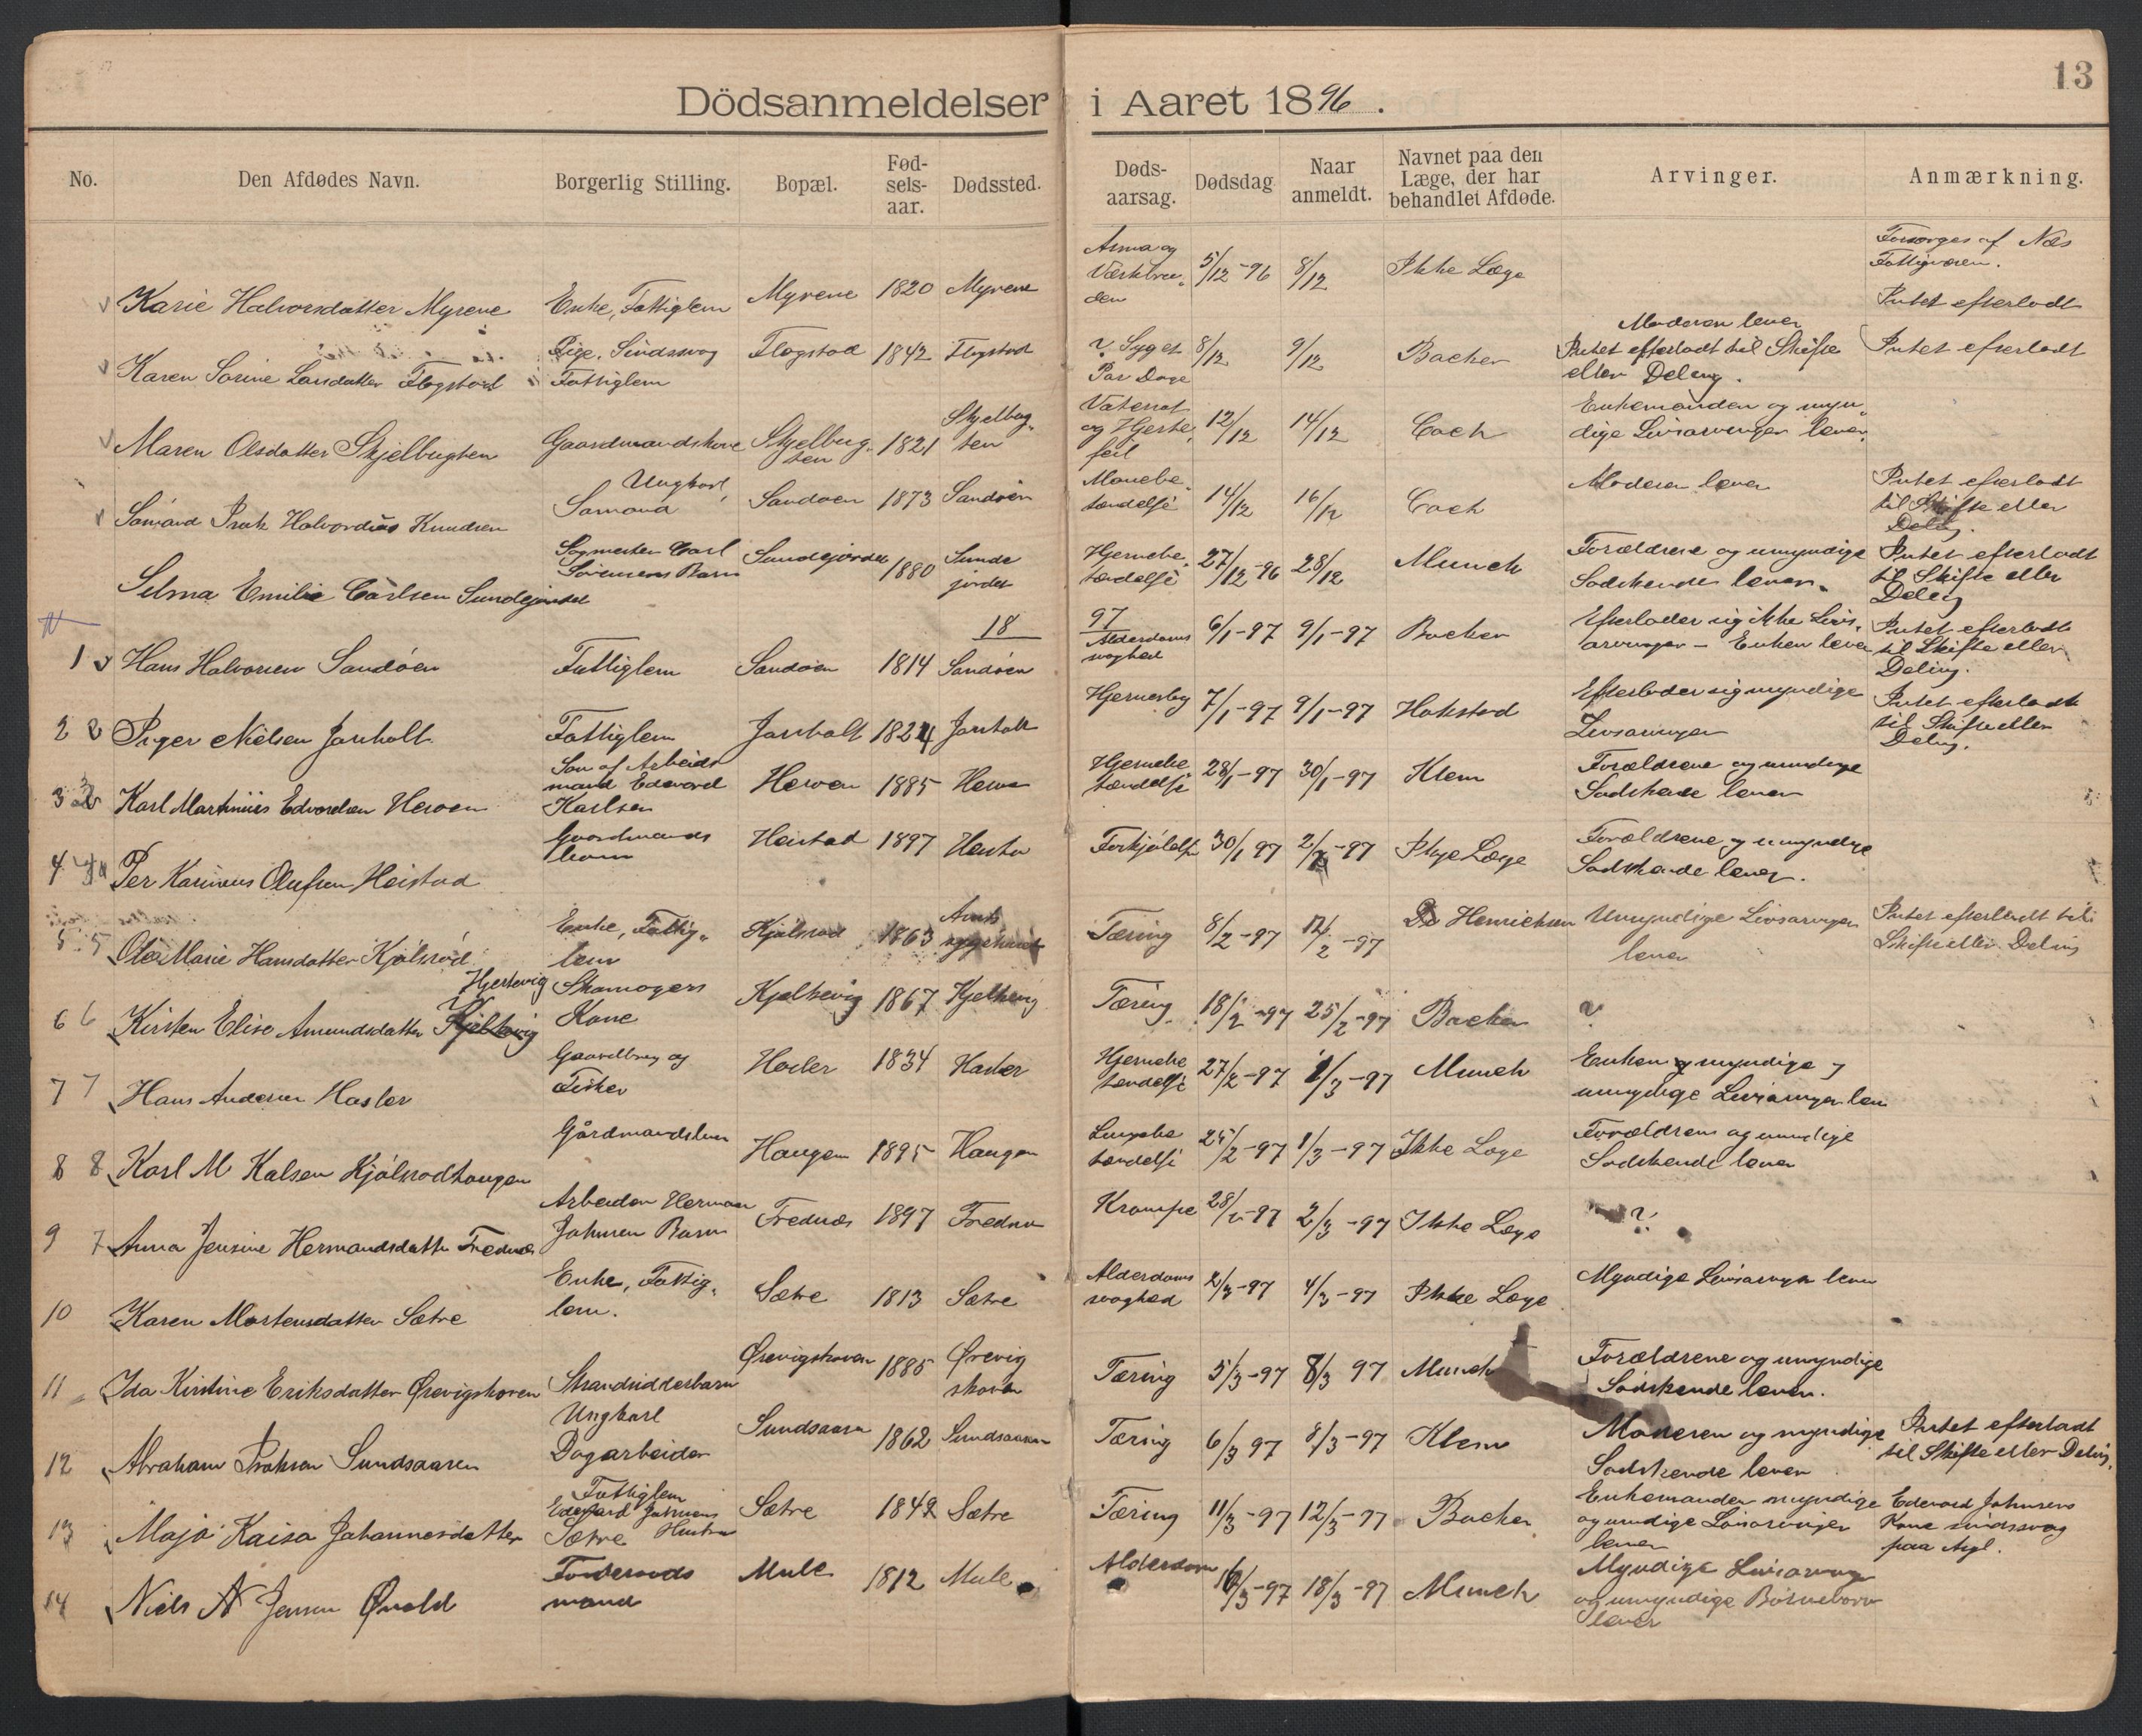 13
Dödsanmeldelser i Aaret 1896.
No. Den Afdødes Navn. Borgerlig Stilling. Bopæl. Fød- sels- aar. Dødssted. Døds- aarsag. Dødsdag Naar anmeldt. Navnet paa den Læge, der har behandlet Afdøde. Arvinger. Anmærkning.
Karie Halvorsdatter Myrene Enke, Fattiglem Myrene 1820 Myrene Asma og 5/12-96 8/12 Ikke Læge Forsørges af Næs Fattigvæsen. Intet efterladt
Karen Sorine Larsdatter Flogstad Pige, Sindssvag Fattiglem Flogstad 1842 Flogstad ? Syg et Par Dage 8/12 9/12 Backer Moderen lever Intet efterladt til Skifte eller Deling. Intet efterladt
Maren Olsdatter Skjelbugten Gaardmandskone Skjelbug- ten 1821 Skjelbug- ten Vatersot og Hjerte- feil 12/12 14/12 Coch Enkemanden og myn- dige Livsarvinger lever.
Knudsen Ungkarl, Sømand Sandøen 1873 Sandøen Mavebe- tændelse 14/12 16/12 Coch Moderen lever Intet efterladt til Skifte eller Deling.
Selma Emilie Carlsen Sundejordet Sagmester Carl Sørensens Barn Sundejordet 1880 Sunde jordet Hjernebe- tændelse 27/12-96 28/12 Munch Forældrene og umyndige Sødskende lever. Intet efterladt til Skifte eller Deling
18 97
1 Hans Halvorsen Sandøen Fattiglem Sandøen 1814 Sandøen Alderdoms svaghed 6/1-97 9/1-97 Backer Efterlader sig ikke Livs- arvinger - Enken lever Intet efterladt til Skifte eller Deling.
2 2 Inger Nielsen Jonholt Fattiglem Jonholt 1824 Jonholt 7/1-97 9/1-97 Hakstad Efterlader sig myndige Livsarvinger Intet efterladt til Skifte eller Deling.
3 3 Karl Martinius Edvardsen Heroen Søn af Arbeids mand Edevard Karlsen Heroen 1885 Heroen Hjernebe tændelse 28/1-97 30/1-97 Klem Forældrene og umyndige Sødskende lever
4 4 Per Karinius Olufsen Heistad Gaardmands barn Heistad 1897 Heistad Forkjølelse 30/1 97 2/2-97 Ikke Læge Forældrene og umyndige Sødskende lever.
5 5 Ole Marie Hansdatter Kjølsrød Enke, Fattig- lem Kjølsrød 1863 Amts sygehuset Tæring 8/2-97 12/2-97 Dr Henrichsen Umyndige Livsarvinger lever Intet efterladt til Skifte eller Deling
6 6 Kirsten Elise Amundsdatter Kjeltevig Hjertevig Skomagers Kone Kjeltevig 1867 Kjeltevig Tæring 18/2-97 25/2-97 Backer ?
7 7 Hans Andersen Hasler Gaardbrug og Fisker Hasler 1834 Hasler Hjernebe tændelse 27/2-97 1/3-97 Munch Enken og myndige og umyndige Livsarvinger lever
8 8 Karl M Kalsen Kjølsrodhaugen Gårdmandsbarn Haugen 1895 Haugen Lungebe tændelse 25/2-97 1/3-97 Ikke Læge Forældrene og umyndige Sødskende lever
9 7 Anna Jensine Hermandsdatter Frednæs Arbeider Herman Johnsen Barn Frednæs 1897 Frednæs Krampe 28/2-97 2/3-97 Ikke Læge ?
10 Karen Mortensdatter Sætre Enke, Fattig- lem. Sætre 1813 Sætre Alderdoms svaghed 2/3-97 4/3-97 Ikke Læge Myndige Livsarvinger lever
11 Ida Kirstine Eriksdatter Ørevigskoven Strandsidderbarn Ørevigskoven 1885 Ørevig skoven Tæring 5/3-97 8/3 97 Munch Forældrene og umyndige Sødskende lever.
12 Abraham Isaksen Sundsaasen Ungkarl Dagarbeider Sundsaasen 1862 Sundsaasen Tæring 6/3 97 8/3-97 Klem Moderen og myndige Sødskende lever Intet efterladt til Skifte eller Deling.
13 Maja Kaisa Johannesdatter Fattiglem Edevard Johnsens Hustru Sætre Sætre 1842 Sætre Tæring 11/3-97 12/3-97 Backer Enkemanden myndige og umyndige Livsarvinger lever Edevard Johnsens Kone sindssvag paa Asyl.
14 Niels A Jensen Øvald Foderaads mand Mule 1812 Mule Alderdom 16/3-97 18/3-97 Munch Myndige Livsarvinger og umyndige Børnebørn lever